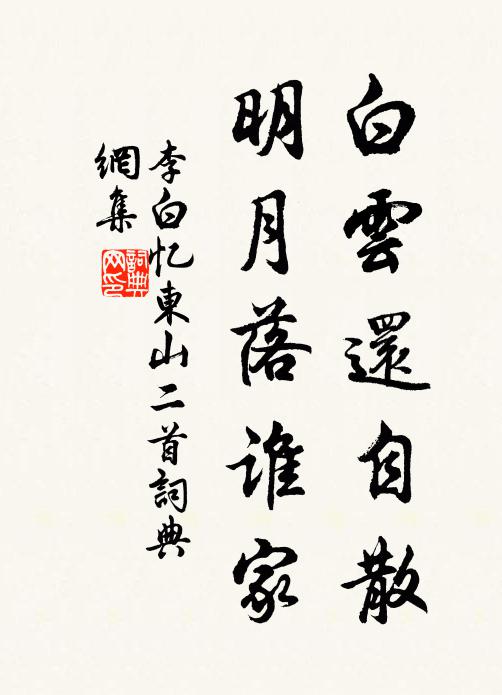 白雲還自散
明月落誰家
李白忆東山二首詞典
網集
詞典
网印